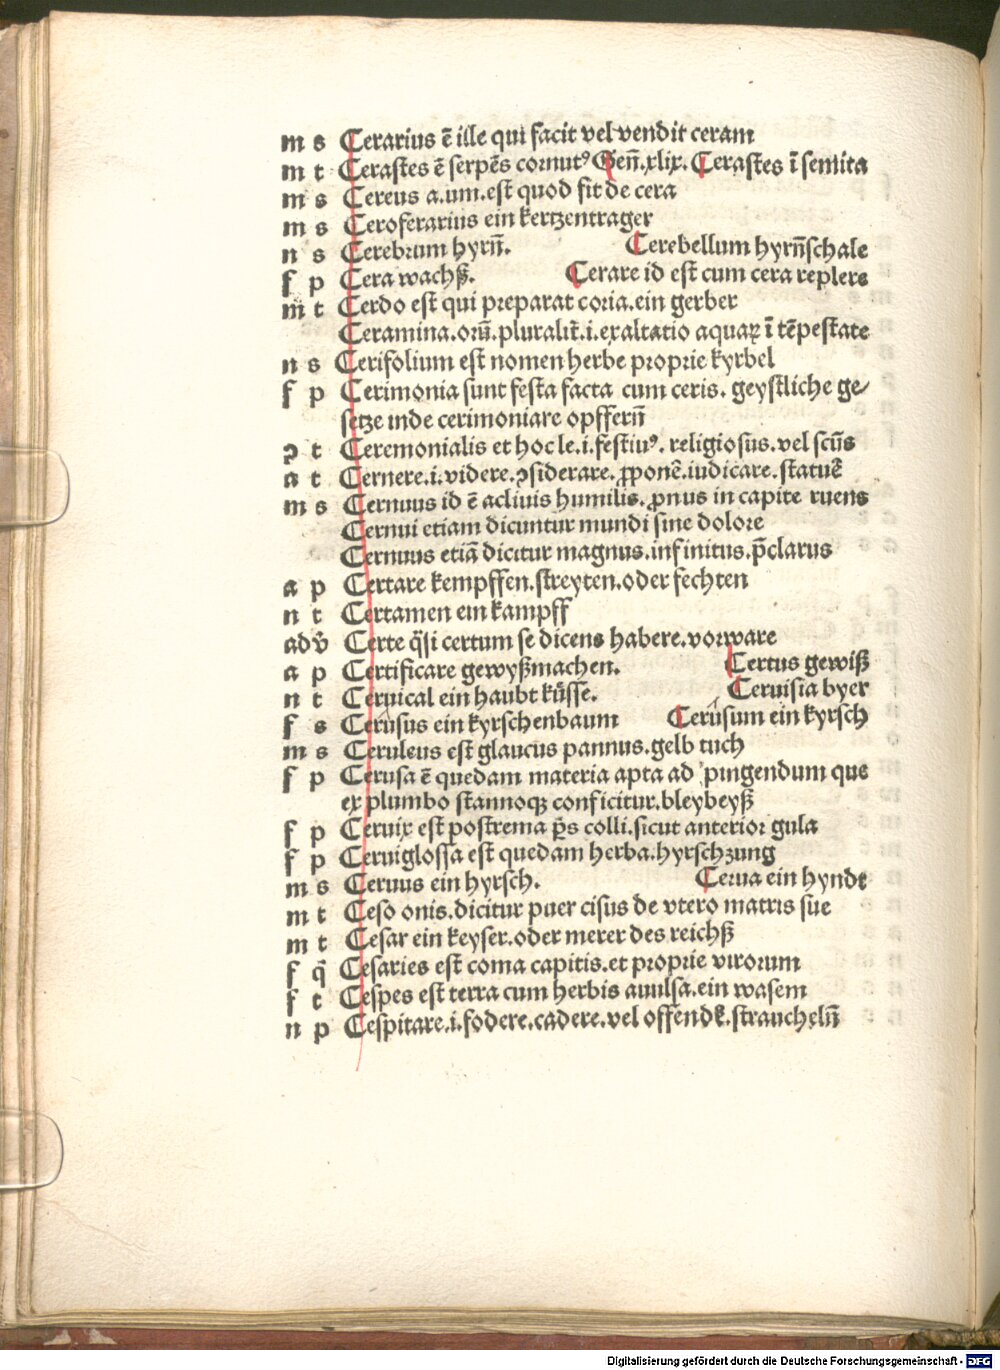 m s Cerarius ē ille qui facit vel vendit ceram
m t Cerastes ē serpēs cornutꝰ Geñ.xlix. Cerastes ī semita
m s Cereus a.um.est quod fit de cera
m s Ceroferarius ein kertzentrager
n s Cerebrum hyrñ. Cerebellum hyrñschale
f p Cera wachß. Cerare id est cum cera replere
m t Cerdo est qui preparat coria.ein gerber
Ceramina.orū.pluralit̄.i.exaltatio aquaꝝ ī tēpestate
n s Cerifolium est nomen herbe proprie kyrbel
f p Cerimonia sunt festa facta cum ceris. geystliche ge⸗
setze inde cerimoniare opfferñ
ꝯ t Ceremonialis et hoc le.i.festiuꝰ. religiosus.vel scūs
a t Cernere.i.videre.ꝯsiderare.ꝓponē.iudicare.statuē
m s Cernuus id ē acliuis humilis.ꝓnus in capite ruens
Cernui etiam dicuntur mundi sine dolore
Cernuus etiā dicitur magnus.infinitus.p̄clarus
a p Certare kempffen.streyten.oder fechten
n t Certamen ein kampff
adv̄ Certe q̄si certum se dicens habere.vorware
a p Certificare gewyßmachen. Certus gewiß
n t Ceruical ein haubt kůsse. Ceruisia byer
f s Cerusus ein kyrschenbaum Cerusum ein kyrsch
m s Ceruleus est glaucus pannus.gelb tuch
f p Cerusa ē quedam materia apta ad pingendum que
ex plumbo stannoqꝫ conficitur.bleybeyß
f p Ceruix est postrema p̄s colli.sicut anterior gula
f p Ceruiglossa est quedam herba.hyrschzung
m s Ceruus ein hyrsch. Cerua ein hynde
m t Ceso onis.dicitur puer cisus de vtero matris sue
m t Cesar ein keyser.oder merer des reichß
f q̄ Cesaries est coma capitis.et proprie virorum
f t Cespes est terra cum herbis auulsa.ein wasem
n p Cespitare.i.fodere.cadere.vel offendē.strauchelñ
Digitalisierung gefördert durch die Deutsche Forschungsgemeinschaft - DFG